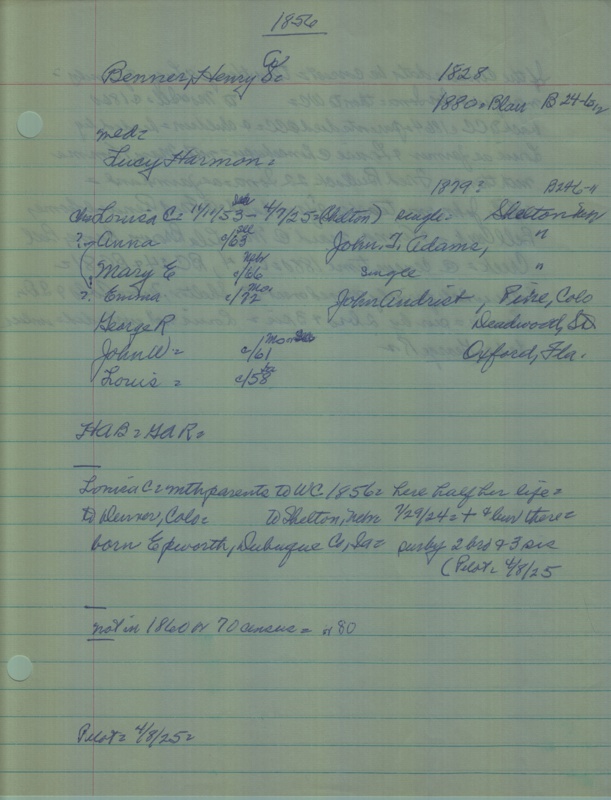 1856
Benner, Henry G. 1828
1880 = Blair B 24-6
med=
Lucy Harmon =
1879? B246-11
Louisa C = 11/11/53 - 4/7/25 = (Shelton) single = Shelton Neb
? Anna c/63 John. T. Adams, "
Mary E c/66 single "
? Emma c/72 John Andrist, Pine, Colo
George R Deadwood, SD
John W = c/61 Oxford, Fla.
Louis = c/58
HAB = GAR =
Louisa C = mth parents to WC 1856 = here half her life =
to Denver, Colo = to Shelton, nebr 7/29/24 = + & bur there =
born Epworth, Dubuque Co, Ia = sur by 2 bro & 3 sis
(Pilot = 4/8/25
not in 1860 or 70 census = or 80
Pilot = 4/8/25 =